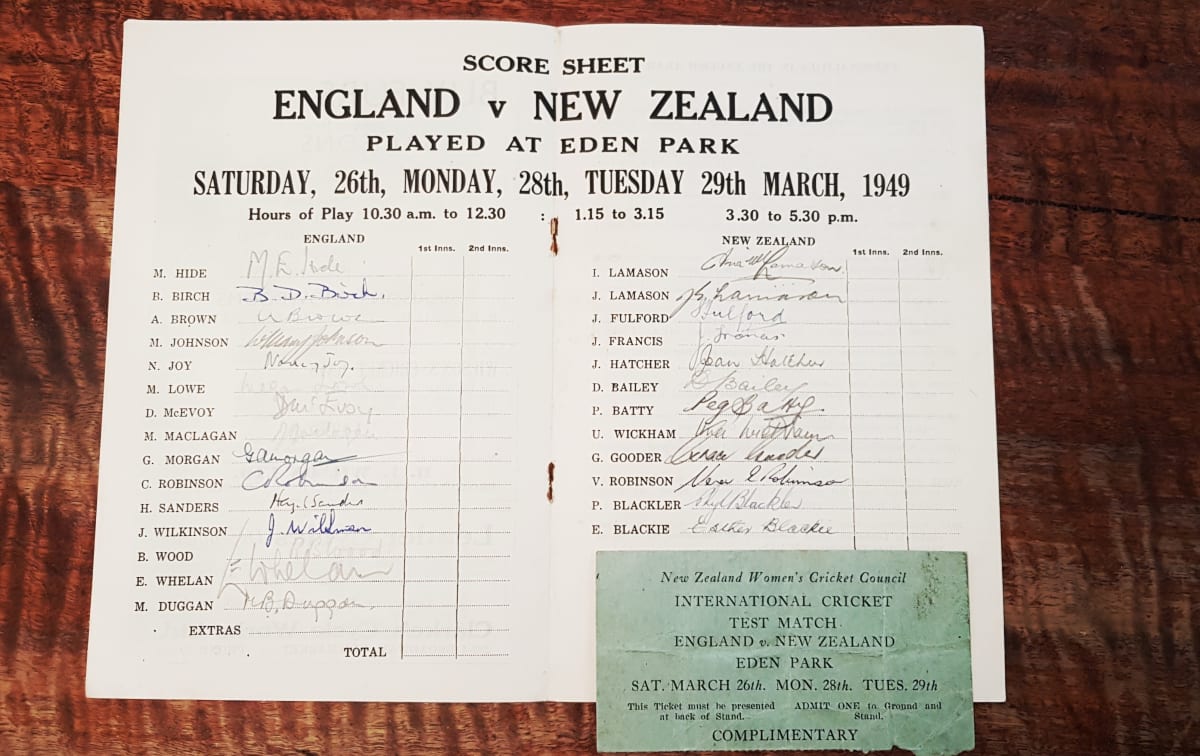 SCORE SHEET
ENGLAND v NEW ZEALAND
PLAYED AT EDEN PARK
SATURDAY, 26th, MONDAY, 28th, TUESDAY 29th MARCH, 1949
Hours of Play 10.30 a.m. to 12.30 : 1.15 to 3.15 3.30 to 5.30 p.m.
ENGLAND
1st Inns. 2nd Inns.
M. HIDE M. E. Hide
B. BIRCH B. D. Birch.
A. BROWN A Brown
M. JOHNSON Johnson
N. JOY Nancy Joy.
M. LOWE
D. McEVOY D McEvoy
M. MACLAGAN Maclagan
G. MORGAN G A Morgan
C. ROBINSON C Robinson
H. SANDERS Sanders
J. WILKINSON J. Wilkinson
B. WOOD
E. WHELAN E Whelan
M. DUGGAN M B. Duggan.
EXTRAS
TOTAL
NEW ZEALAND
1st Inns. 2nd Inns.
I. LAMASON Ina M Lamason.
J. LAMASON J. Lamason
J. FULFORD J Fulford
J. FRANCIS J. Francis
J. HATCHER Joan Hatcher
D. BAILEY D Bailey
P. BATTY Peg Batty.
U. WICKHAM Una Wickham
G. GOODER Grace Gooder
V. ROBINSON Vera E Robinson
P. BLACKLER Phyl Blackler
E. BLACKIE Esther Blackie
New Zealand Women's Cricket Council
INTERNATIONAL CRICKET
TEST MATCH
ENGLAND v. NEW ZEALAND
EDEN PARK
SAT. MARCH 26th. MON. 28th. TUES. 29th
This Ticket must be presented at back of Stand.
ADMIT ONE to Ground and Stand.
COMPLIMENTARY